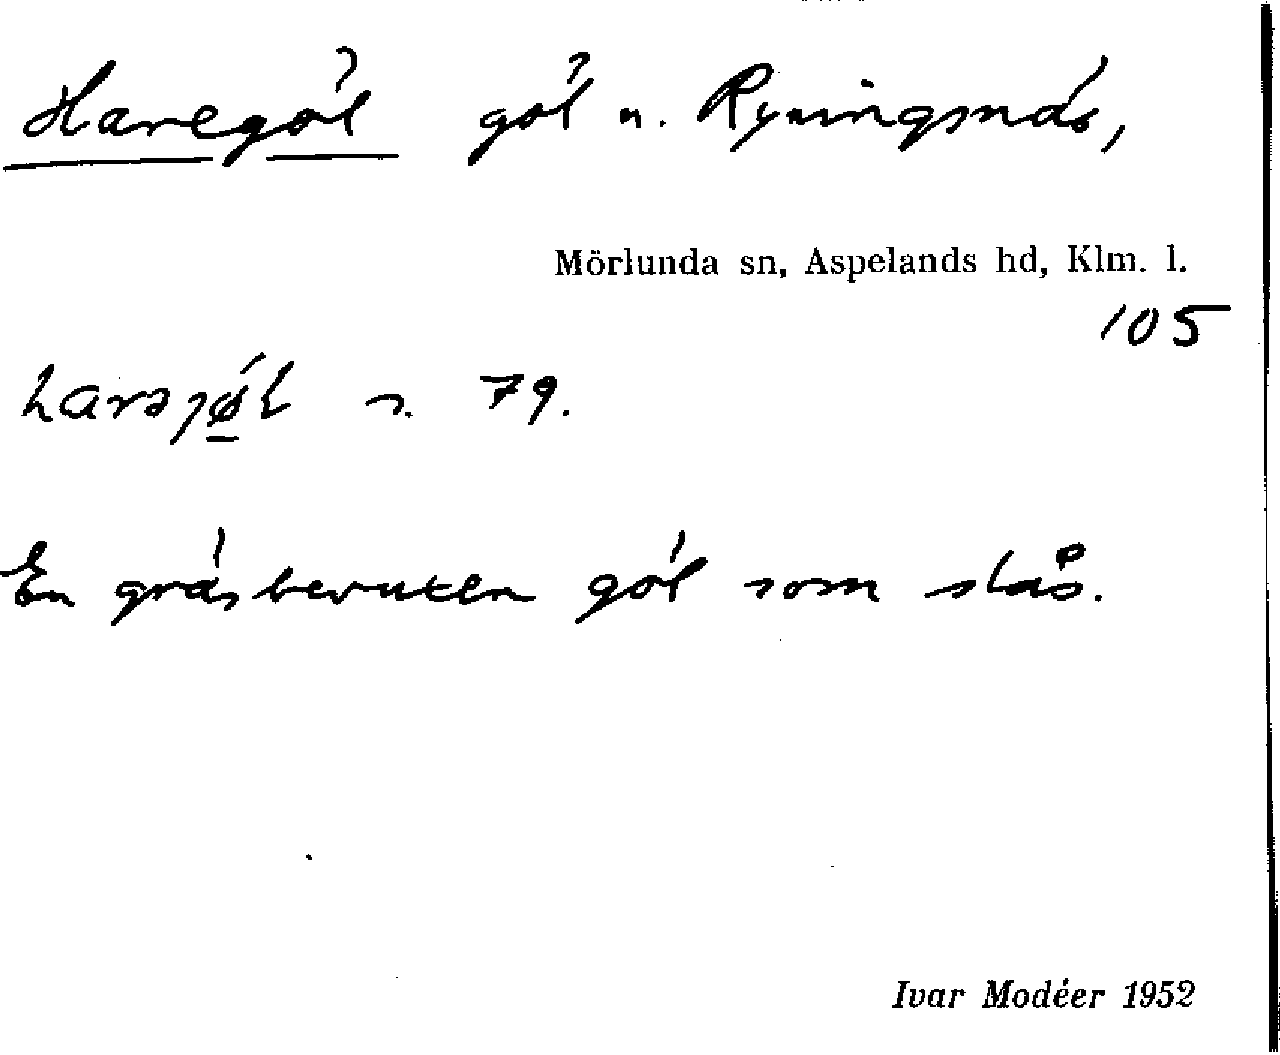 Haregöl göl n. Ryningsnäs,
Mörlunda sn, Aspelands hd, Klm. l.
105
s. 79.
En gräsbevuxen göl som slås.
Ivar Modéer 1952